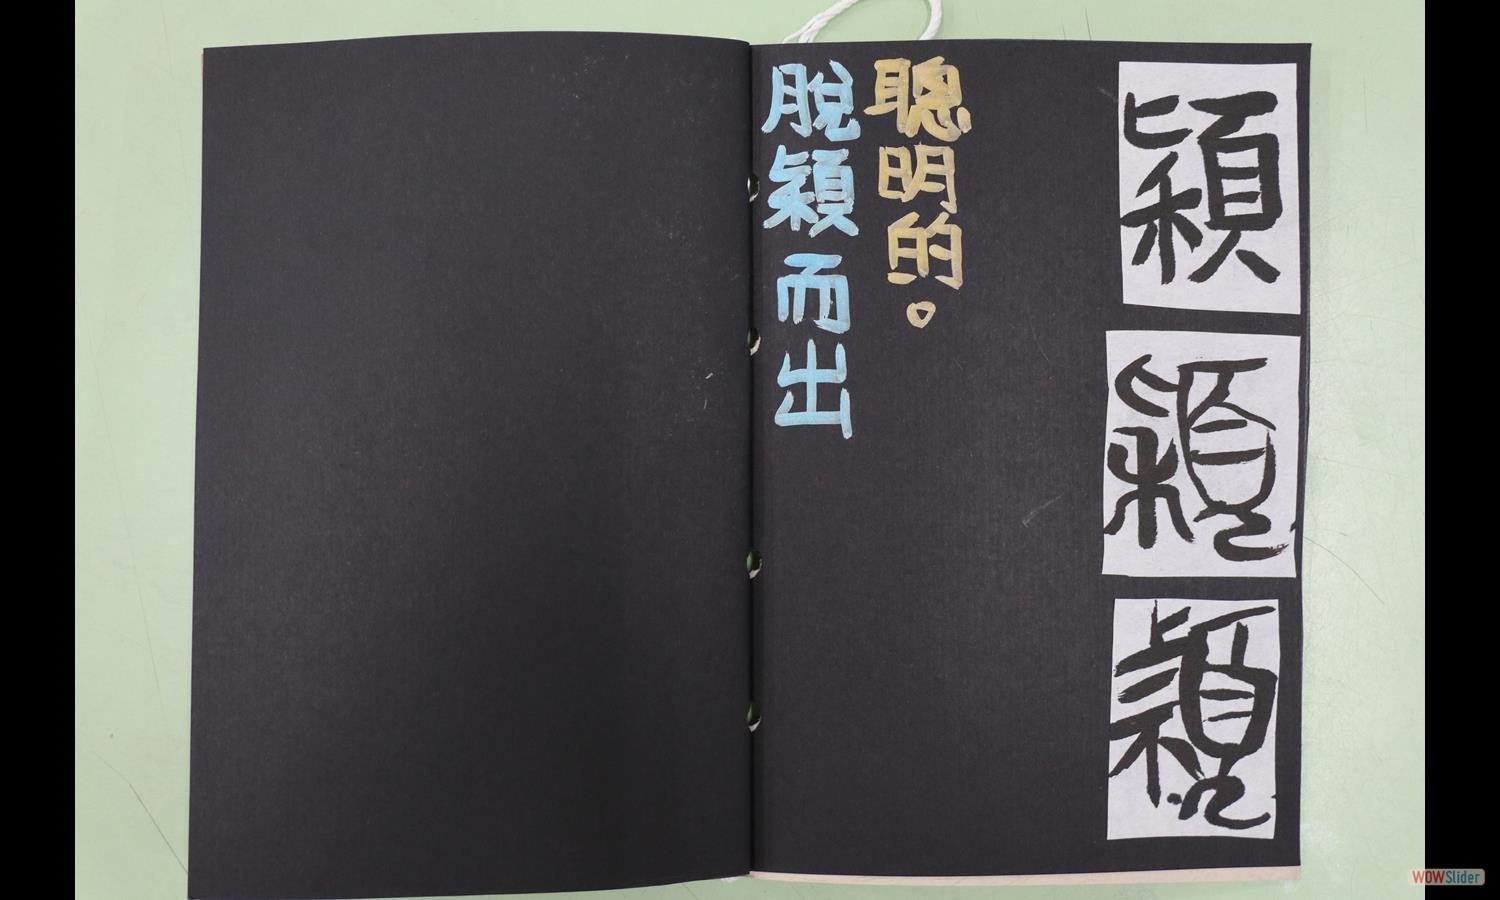 穎
穎
穎
聰明的。
脫穎而出
WOWSlider